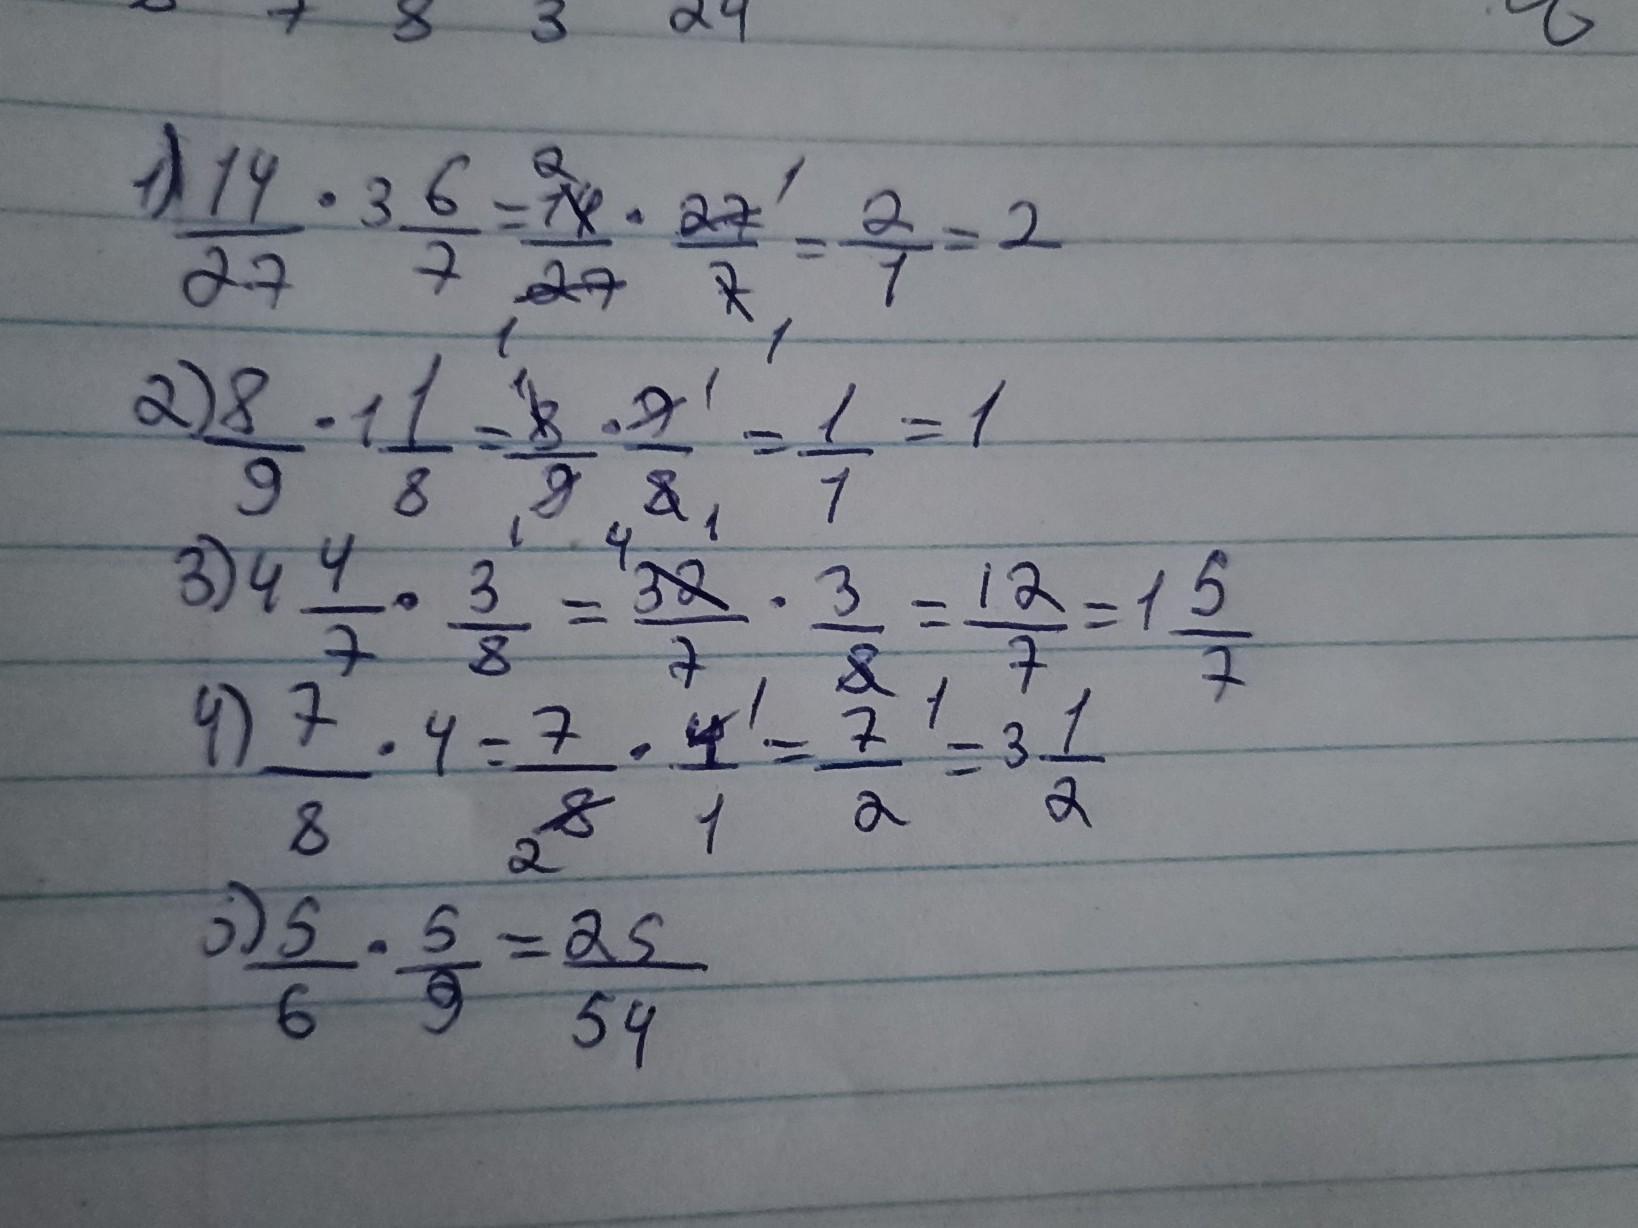 7 8 3 24
1) 14/27 · 3 6/7 = 14/27 · 27/7 = 2/1 = 2
2) 8/9 · 1 1/8 = 8/9 · 9/8 = 1/1 = 1
3) 4 4/7 · 3/8 = 32/7 · 3/8 = 12/7 = 1 5/7
4) 7/8 · 4 = 7/8 · 4/1 = 7/2 = 3 1/2
5) 5/6 · 5/9 = 25/54